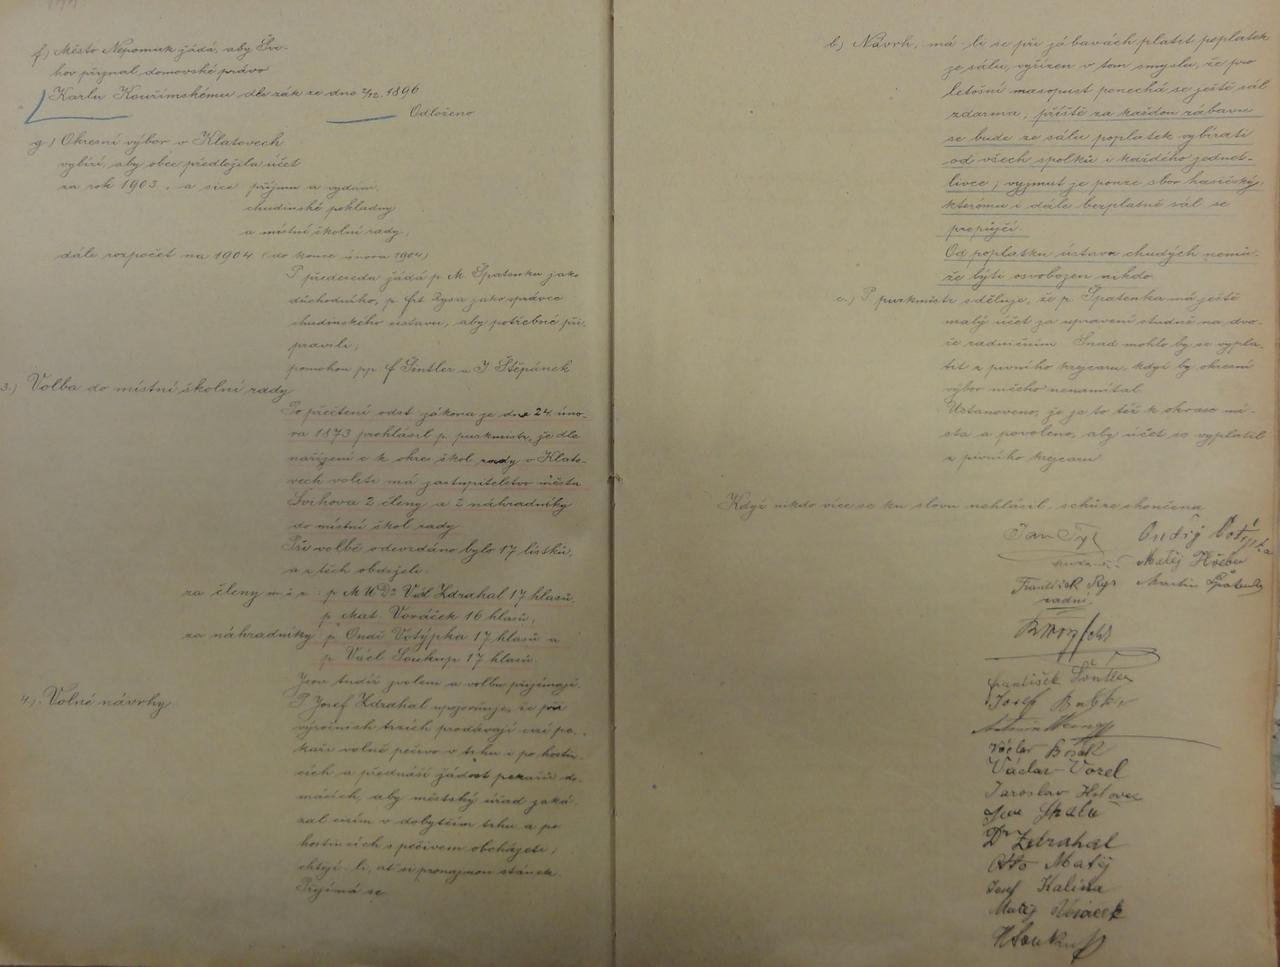 f.) Město Nepomuk žádá, aby Švi-
hov přiznal domovské právo
Karlu Kouřimskému dle zák ze dne 5/12. 1896
Odloženo
g.) Okresní výbor v Klatovech
vybízí, aby obec předložila účet
za rok 1903. a sice příjmu a vydání,
chudinské pokladny
a místní školní rady,
dále rozpočet na 1904 (do konce února 1904)
P předseda žádá p. M. Špatenku jako
důchodního, p. frt. Rysa jako správce
chudinského ústavu, aby potřebné při-
pravili;
pomohou pp f Šintler a J. Štěpánek
3.) Volba do místní školní rady
Po přečtení odst. zákona ze dne 24 úno-
ra 1873 prohlásil p. purkmistr, že dle
nařízení c k okres škol rady v Klato-
vech voliti má zastupitelstvo města
Švihova 2 členy a 2 náhradníky
do místní škol rady
Při volbě odevzdáno bylo 17 lístků,
a z těch obdrželi:
za členy m š r: p MUDr Vál Zdrahal 17 hlasů,
p Mat. Vováček 16 hlasů,
za náhradníky p Ondř Votýpka 17 hlasů a
p Václ Soukup 17 hlasů
Jsou tudíž zvoleni a volbu přijímají.
4.) Volné návrhy
P Josef Zdrahal upozorňuje, že při
výročních trzích prodávají cizí pe-
kaři volně pečivo v trhu i po hostin-
cích a přednáší žádost pekařů do-
mácích, aby městský úřad zaká-
zal cizím v dobytčím trhu a po
hostincích s pečivem obcházeti;
chtějí-li, ať si pronajmou stánek.
Přijímá se
b.) Návrh, má-li se při zábavách platit poplatek
ze sálu, vyřízen v tom smyslu, že pro
letošní masopust ponechá se ještě sál
zdarma, příště za každou zábavu
se bude ze sálu poplatek vybírati
od všech spolků i každého jednot-
livce; vyjmut je pouze sbor hasičský,
kterému i dále bezplatně sál se
propůjčí.
Od poplatku ústavu chudých nemů-
že býti osvobozen nikdo
c.) P purkmistr sděluje, že p. Špatenka má ještě
malý účet za upravení studně na dvo-
ře radničním Snad mohlo by se vypla-
tit z pivního krejcaru, když by okresní
výbor ničeho nenamítal
Ustanoveno, že je to též k okrase mě-
sta a povoleno, aby účet se vyplatil
z pivního krejcaru
Když nikdo více se ku slovu nehlásil, schůze skončena
Jan Tyl Ondřej Votýpka
Matěj Hřeben
František Rys Martin Špatenka
radní
František Šintler
Josef
Václav
Václav Vozel
Jaroslav
Jan Skala
Dr Zdrahal
Otto Matěj
Josef Kalina
Matěj Vováček
V Soukup